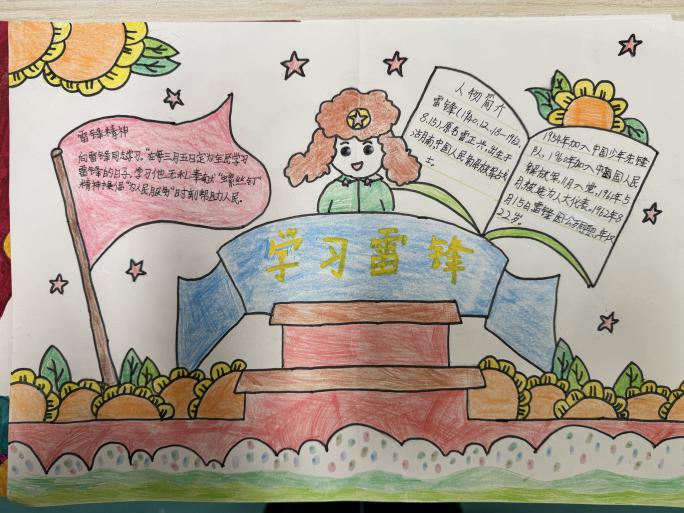 雷锋精神
向雷锋同志学习。"在每三月五日定为全民学习
雷锋的日子,学习他无私奉献"螺丝钉"
精神提倡"为人民服务"时刻帮助人民。
学习雷锋
人物简介
雷锋(1940.12.18—1962.
8.15),原名雷正兴,出生于
湖南,中国人民解放军战
士。
1954年加入中国少年先锋
队,1960年加入中国人民
解放军,11月入党,1961年5
月被选为人大代表,1962年8
月15日雷锋因公殉职,年仅
22岁。